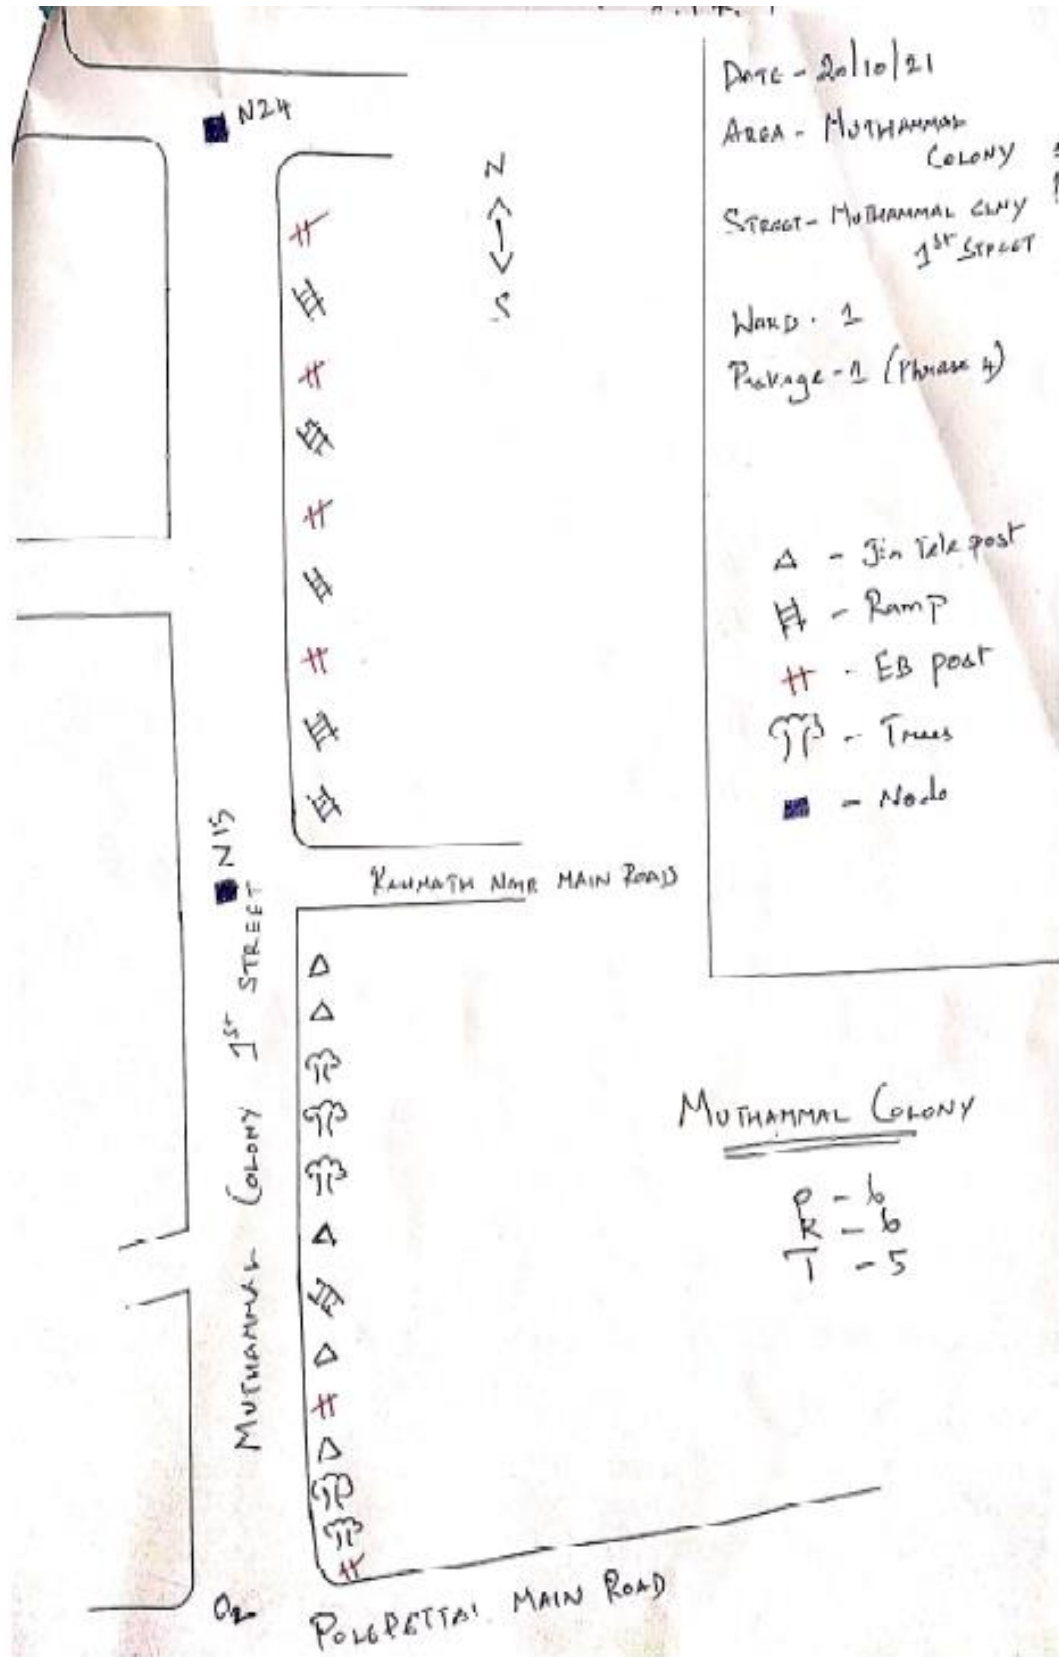 DATE - 20/10/21
AREA - MUTHAMMAL
COLONY
STREET - MUTHAMMAL CLNY
1st STREET
WARD . 1
Package - 1 (Phrase 4)
N24
N
S
△ - Jio Tele post
- Ramp
- EB post
- Trees
- Node
N15
MAIN ROAD
MUTHAMMAL COLONY 1st STREET
MUTHAMMAL COLONY
P - 6
R - 6
T - 5
POLEPETTAI MAIN ROAD